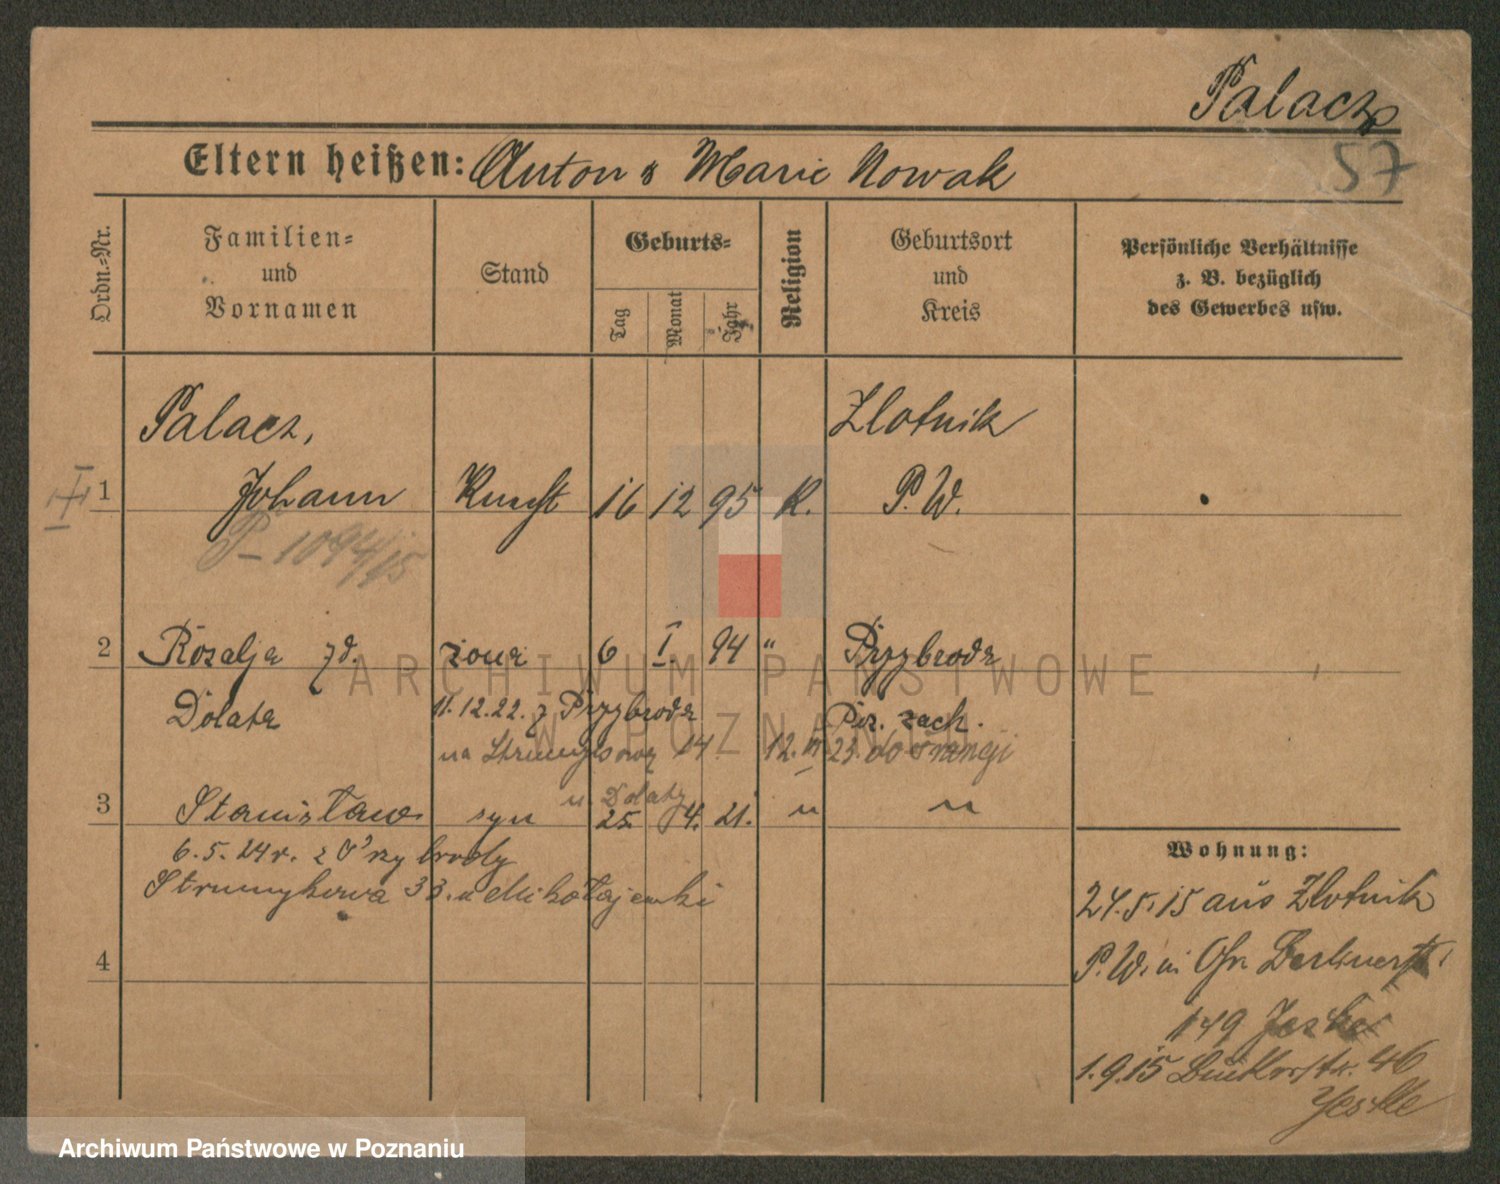 Palacz
57
Eltern heißen: Anton & Marie Nowak
Ordn.=Nr.
Familien= und Vornamen
Stand
Geburts=
Tag
Monat
Jahr
Religion
Geburtsort und Kreis
Persönliche Verhältnisse
z. B. bezüglich
des Gewerbes usw.
Palacz,
Zlotnik
1 Johann 16 12 95 K. P. W.
P-1094/15
2 Rozalja zd. żona 6 I. 94 " Przybroda
Dolata 11.12.22. z Przybroda Poz. zach.
na 14. 12. 23. do
u Dolaty
3 Stanisław syn 25. 4. 21. " "
6.5.24r. z Przybrody
Strumykowa 33. u Mikołajewski
4
Wohnung:
24.5.15 aus Zlotnik
P. W. in Berlinerstr.
149 Jeske
1.9.15 46
Jeske
ARCHIWUM PAŃSTWOWE
W POZNANIU
Archiwum Państwowe w Poznaniu